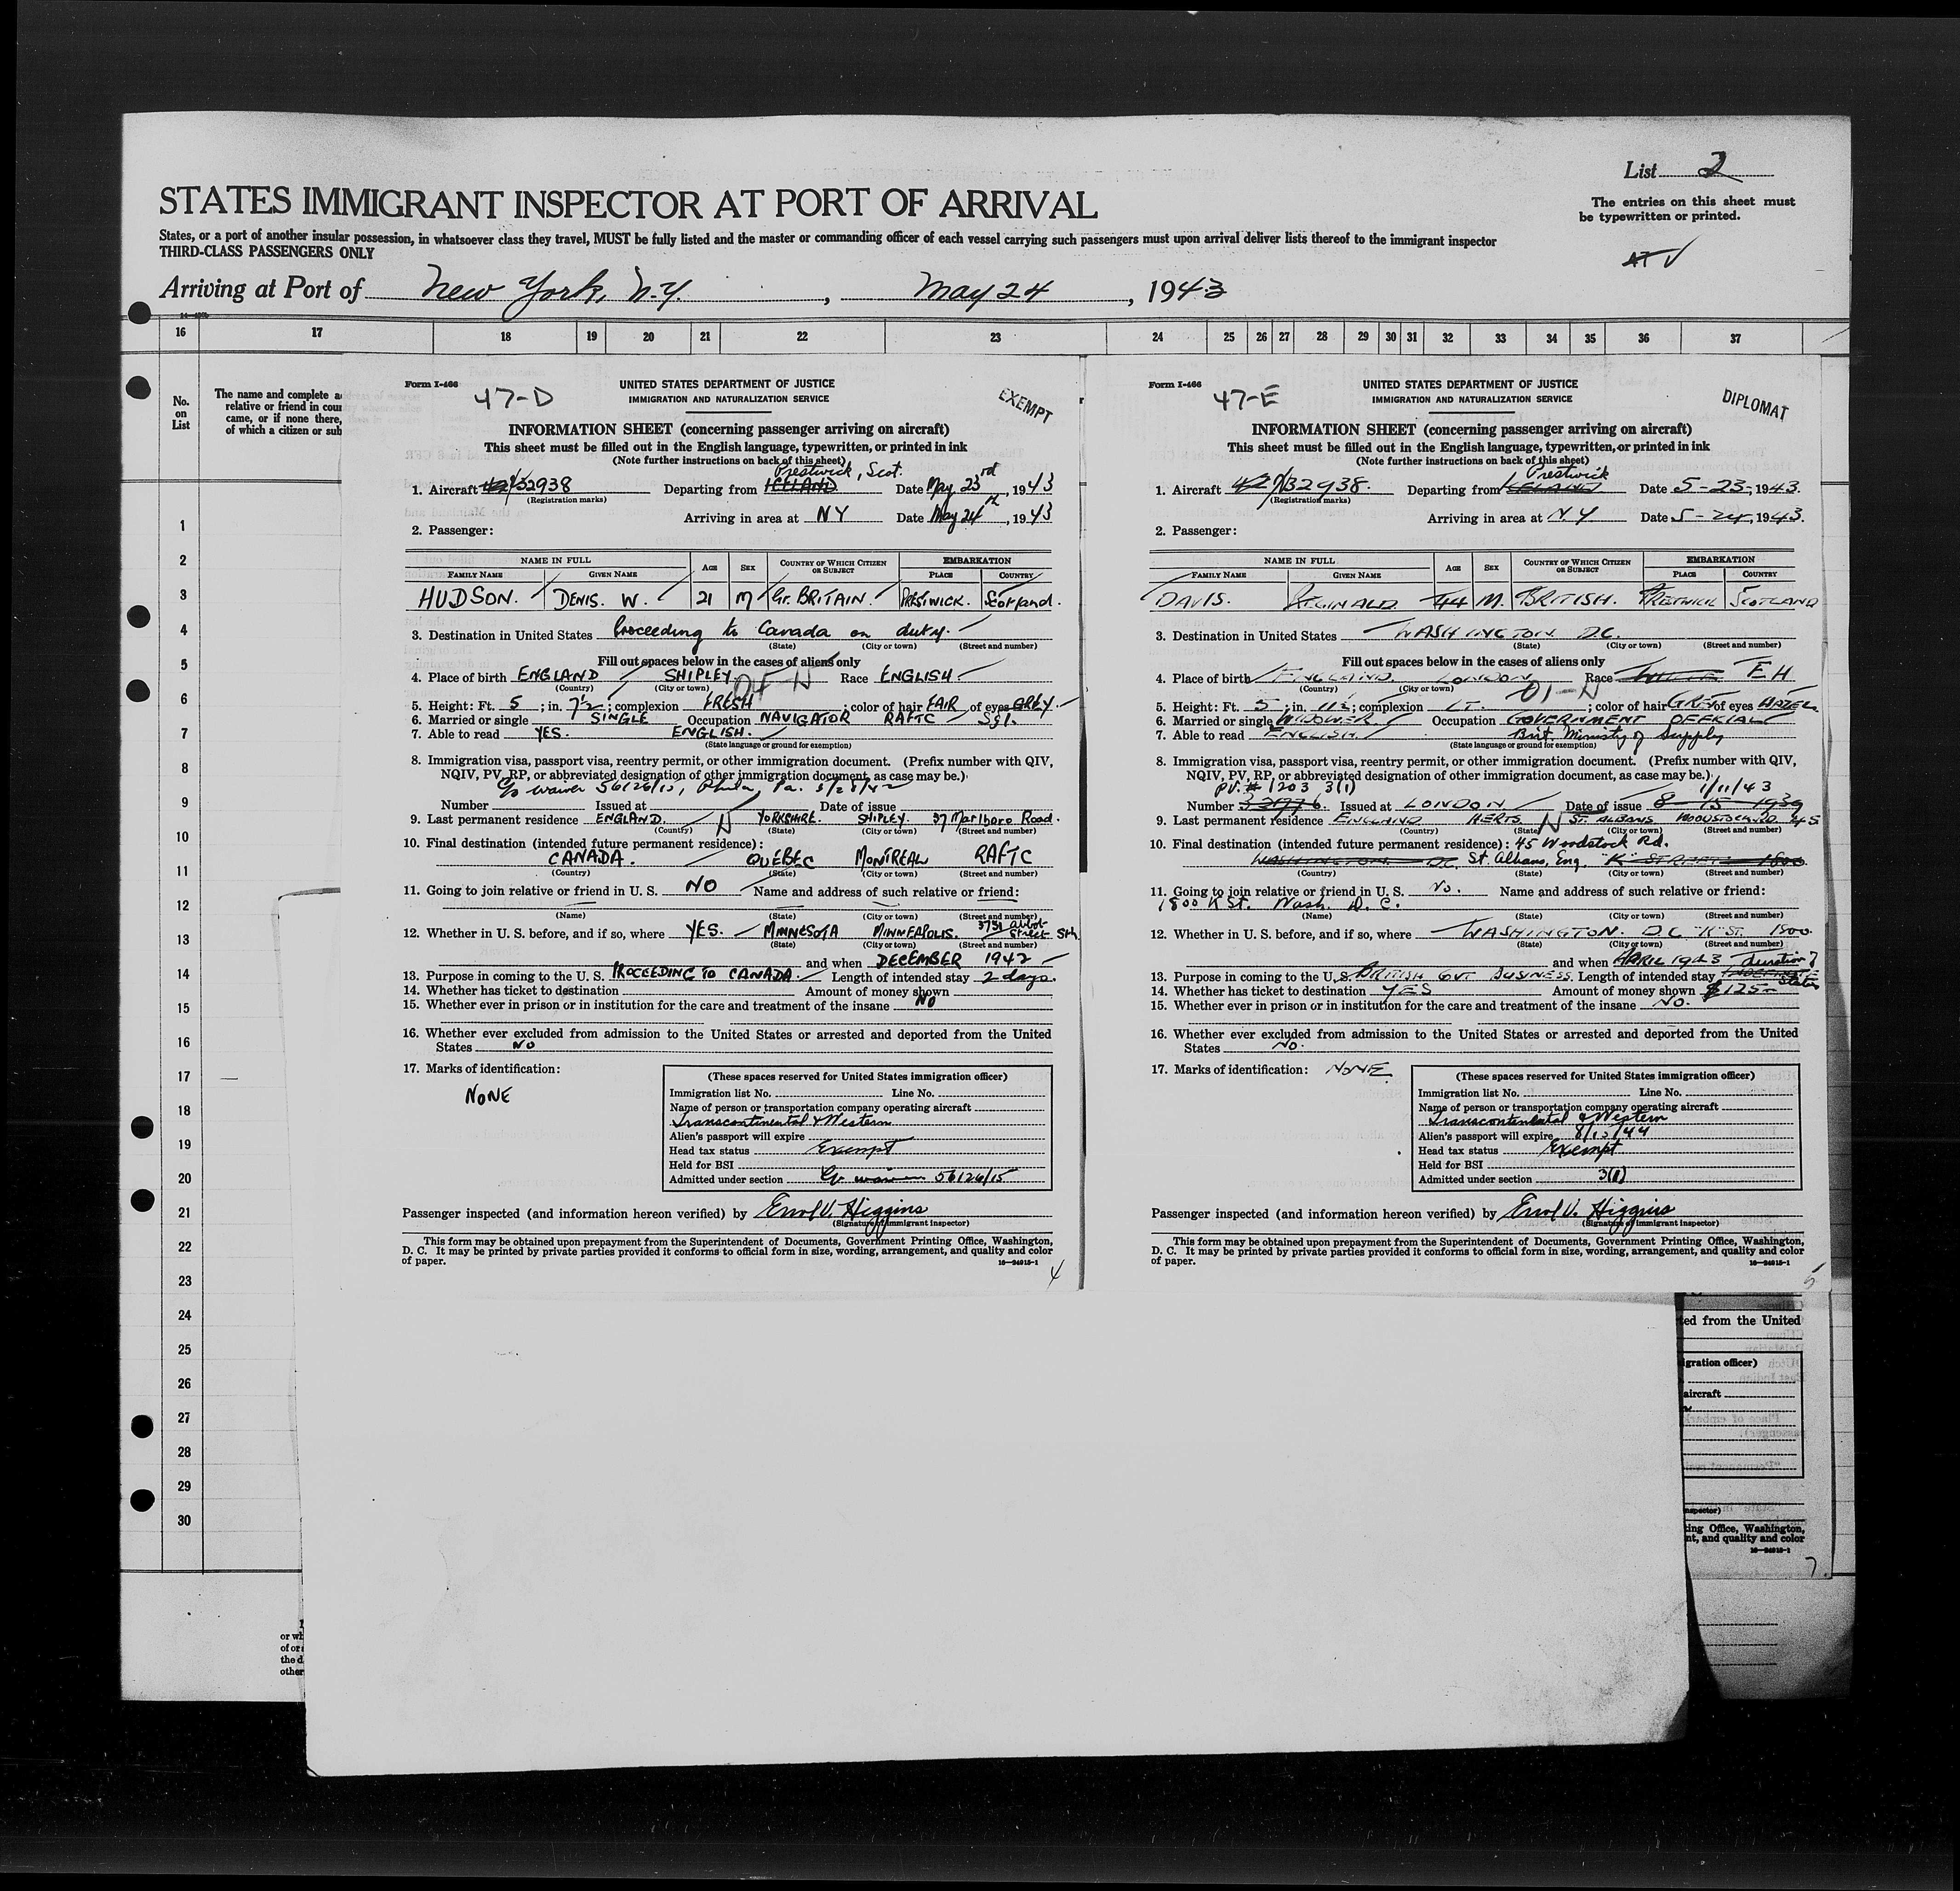 List 2
STATES IMMIGRANT INSPECTOR AT PORT OF ARRIVAL
The entries on this sheet must
be typewritten or printed.
States, or a port of another insular possession, in whatsoever class they travel, MUST be fully listed and the master or commanding officer of each vessel carrying such passengers must upon arrival deliver lists thereof to the immigrant inspector
THIRD-CLASS PASSENGERS ONLY
Arriving at Port of New York, N.Y. , May 24 , 1943
16 17 18 19 20 21 22 23 24 25 26 27 28 29 30 31 32 33 34 35 36 37
No.
on
List
The name and complete
relative or friend in cou
came, or if none there,
of which a citizen or sub
1
2
3
4
5
6
7
8
9
10
11
12
13
14
15
16
17
18
19
20
21
22
23
24
25
26
27
28
29
30
Form I-466
47-D
UNITED STATES DEPARTMENT OF JUSTICE
IMMIGRATION AND NATURALIZATION SERVICE
EXEMPT
INFORMATION SHEET (concerning passenger arriving on aircraft)
This sheet must be filled out in the English language, typewritten, or printed in ink
(Note further instructions on back of this sheet)
Prestwick, Scot.
1. Aircraft 42/32938 Departing from ICELAND Date May 23rd, 1943
(Registration marks)
Arriving in area at NY Date May 24th, 1943
2. Passenger:
NAME IN FULL AGE SEX COUNTRY OF WHICH CITIZEN OR SUBJECT EMBARKATION
FAMILY NAME GIVEN NAME PLACE COUNTRY
HUDSON. DENIS. W. 21 M Gt. BRITAIN. PRESTWICK. Scotland.
3. Destination in United States Proceeding to Canada on duty.
(State) (City or town) (Street and number)
Fill out spaces below in the cases of aliens only
4. Place of birth ENGLAND SHIPLEY Race ENGLISH
(Country) (City or town)
5. Height: Ft. 5 ; in. 7½ ; complexion FRESH ; color of hair FAIR of eyes GREY
6. Married or single SINGLE Occupation NAVIGATOR RAFTC Sgt.
7. Able to read YES. ENGLISH.
(State language or ground for exemption)
8. Immigration visa, passport visa, reentry permit, or other immigration document. (Prefix number with QIV,
NQIV, PV, RP, or abbreviated designation of other immigration document, as case may be.)
Number Issued at Date of issue
9. Last permanent residence ENGLAND. YORKSHIRE. SHIPLEY. 37 Marlboro Road.
(Country) (State) (City or town) (Street and number)
10. Final destination (intended future permanent residence):
CANADA. QUÉBEC MONTREAL RAFTC
(Country) (State) (City or town) (Street and number)
11. Going to join relative or friend in U. S. NO Name and address of such relative or friend:
(Name) (State) (City or town) (Street and number)
12. Whether in U. S. before, and if so, where YES. MINNESOTA MINNEAPOLIS. 3731 Abbot Street Sth.
(State) (City or town) (Street and number)
and when DECEMBER 1942
13. Purpose in coming to the U. S. PROCEEDING TO CANADA. Length of intended stay 2 days.
14. Whether has ticket to destination Amount of money shown
15. Whether ever in prison or in institution for the care and treatment of the insane NO
16. Whether ever excluded from admission to the United States or arrested and deported from the United
States NO
17. Marks of identification:
NONE
(These spaces reserved for United States immigration officer)
Immigration list No. Line No.
Name of person or transportation company operating aircraft
Transcontinental & Western
Alien's passport will expire
Head tax status Exempt
Held for BSI
Admitted under section Go waiver 56126/15
Passenger inspected (and information hereon verified) by Errol V. Higgins
(Signature of immigrant inspector)
This form may be obtained upon prepayment from the Superintendent of Documents, Government Printing Office, Washington,
D. C. It may be printed by private parties provided it conforms to official form in size, wording, arrangement, and quality and color
of paper.
16—24915-1
4
Form I-466
47-E
UNITED STATES DEPARTMENT OF JUSTICE
IMMIGRATION AND NATURALIZATION SERVICE
DIPLOMAT
INFORMATION SHEET (concerning passenger arriving on aircraft)
This sheet must be filled out in the English language, typewritten, or printed in ink
(Note further instructions on back of this sheet)
Prestwick
1. Aircraft 42/32938. Departing from ICELAND Date 5-23-, 1943.
(Registration marks)
Arriving in area at N.Y. Date 5-24, 1943.
2. Passenger:
NAME IN FULL AGE SEX COUNTRY OF WHICH CITIZEN OR SUBJECT EMBARKATION
FAMILY NAME GIVEN NAME PLACE COUNTRY
DAVIS. REGINALD. 44 M. BRITISH. PRESTWICK SCOTLAND
3. Destination in United States WASHINGTON. D.C.
(State) (City or town) (Street and number)
Fill out spaces below in the cases of aliens only
4. Place of birth ENGLAND. LONDON Race WHITE EH
(Country) (City or town)
5. Height: Ft. 5 ; in. 11½ ; complexion LT. ; color of hair GREY of eyes HAZEL
6. Married or single WIDOWER. Occupation GOVERNMENT OFFICIAL
7. Able to read ENGLISH. Brit. Ministry of Supply
(State language or ground for exemption)
8. Immigration visa, passport visa, reentry permit, or other immigration document. (Prefix number with QIV,
NQIV, PV, RP, or abbreviated designation of other immigration document, as case may be.)
PV. # 1203 3(1) 1/11/43
Number Issued at LONDON Date of issue 8-15-1939
9. Last permanent residence ENGLAND HERTS. ST. ALBANS WOODSTOCK RD. 45
(Country) (State) (City or town) (Street and number)
10. Final destination (intended future permanent residence): 45 Woodstock Rd.
WASHINGTON DC. St. Albans, Eng. "K" STREET 1800
(Country) (State) (City or town) (Street and number)
11. Going to join relative or friend in U. S. No. Name and address of such relative or friend:
1800 K St. Wash. D. C.
(Name) (State) (City or town) (Street and number)
12. Whether in U. S. before, and if so, where WASHINGTON. D.C. "K" ST. 1800
(State) (City or town) (Street and number)
and when APRIL 1943 duration of
13. Purpose in coming to the U.S. BRITISH GVT BUSINESS. Length of intended stay INDEFINITE Status
14. Whether has ticket to destination YES Amount of money shown $125-
15. Whether ever in prison or in institution for the care and treatment of the insane NO.
16. Whether ever excluded from admission to the United States or arrested and deported from the United
States NO.
17. Marks of identification: NONE
(These spaces reserved for United States immigration officer)
Immigration list No. Line No.
Name of person or transportation company operating aircraft
Transcontinental & Western
Alien's passport will expire 8/15/44
Head tax status Exempt
Held for BSI
Admitted under section 3(1)
Passenger inspected (and information hereon verified) by Errol V. Higgins
(Signature of immigrant inspector)
This form may be obtained upon prepayment from the Superintendent of Documents, Government Printing Office, Washington,
D. C. It may be printed by private parties provided it conforms to official form in size, wording, arrangement, and quality and color
of paper.
16—24915-1
5
ted from the United
igration officer)
aircraft
nspector)
ting Office, Washington,
nt, and quality and color
16—24915-1
7
or wh
of or
the d
other